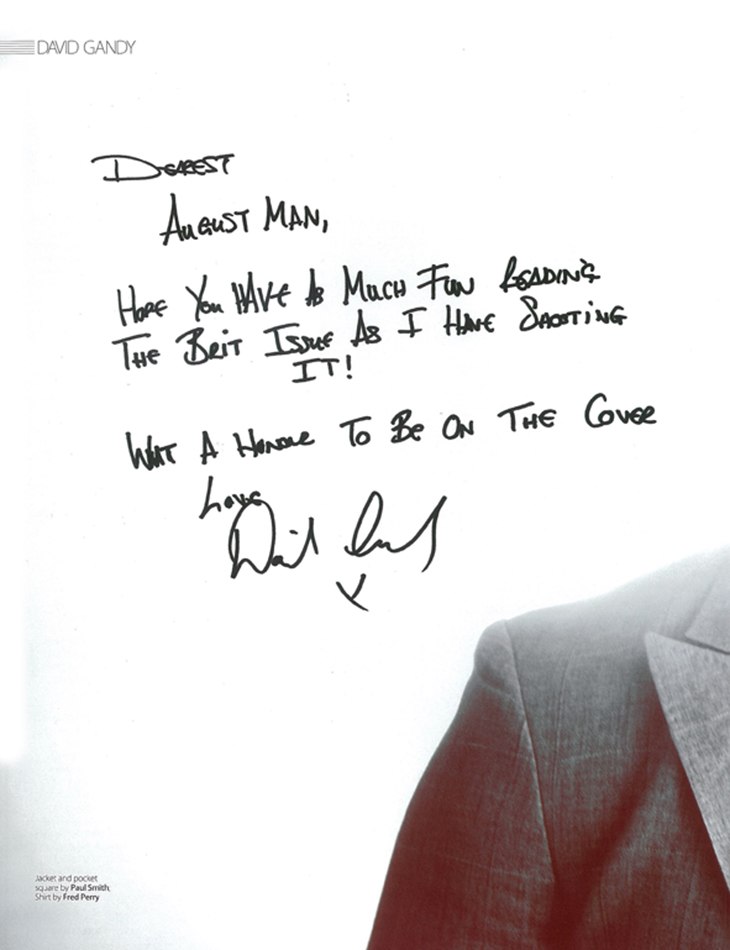 DAVID GANDY
DEAREST
AUGUST MAN,
HOPE YOU HAVE AS MUCH FUN READING
THE BRIT ISSUE AS I HAVE SHOOTING
IT!
WHAT A HONOUR TO BE ON THE COVER
LOVE
David Gandy
X
Jacket and pocket
square by Paul Smith;
Shirt by Fred Perry